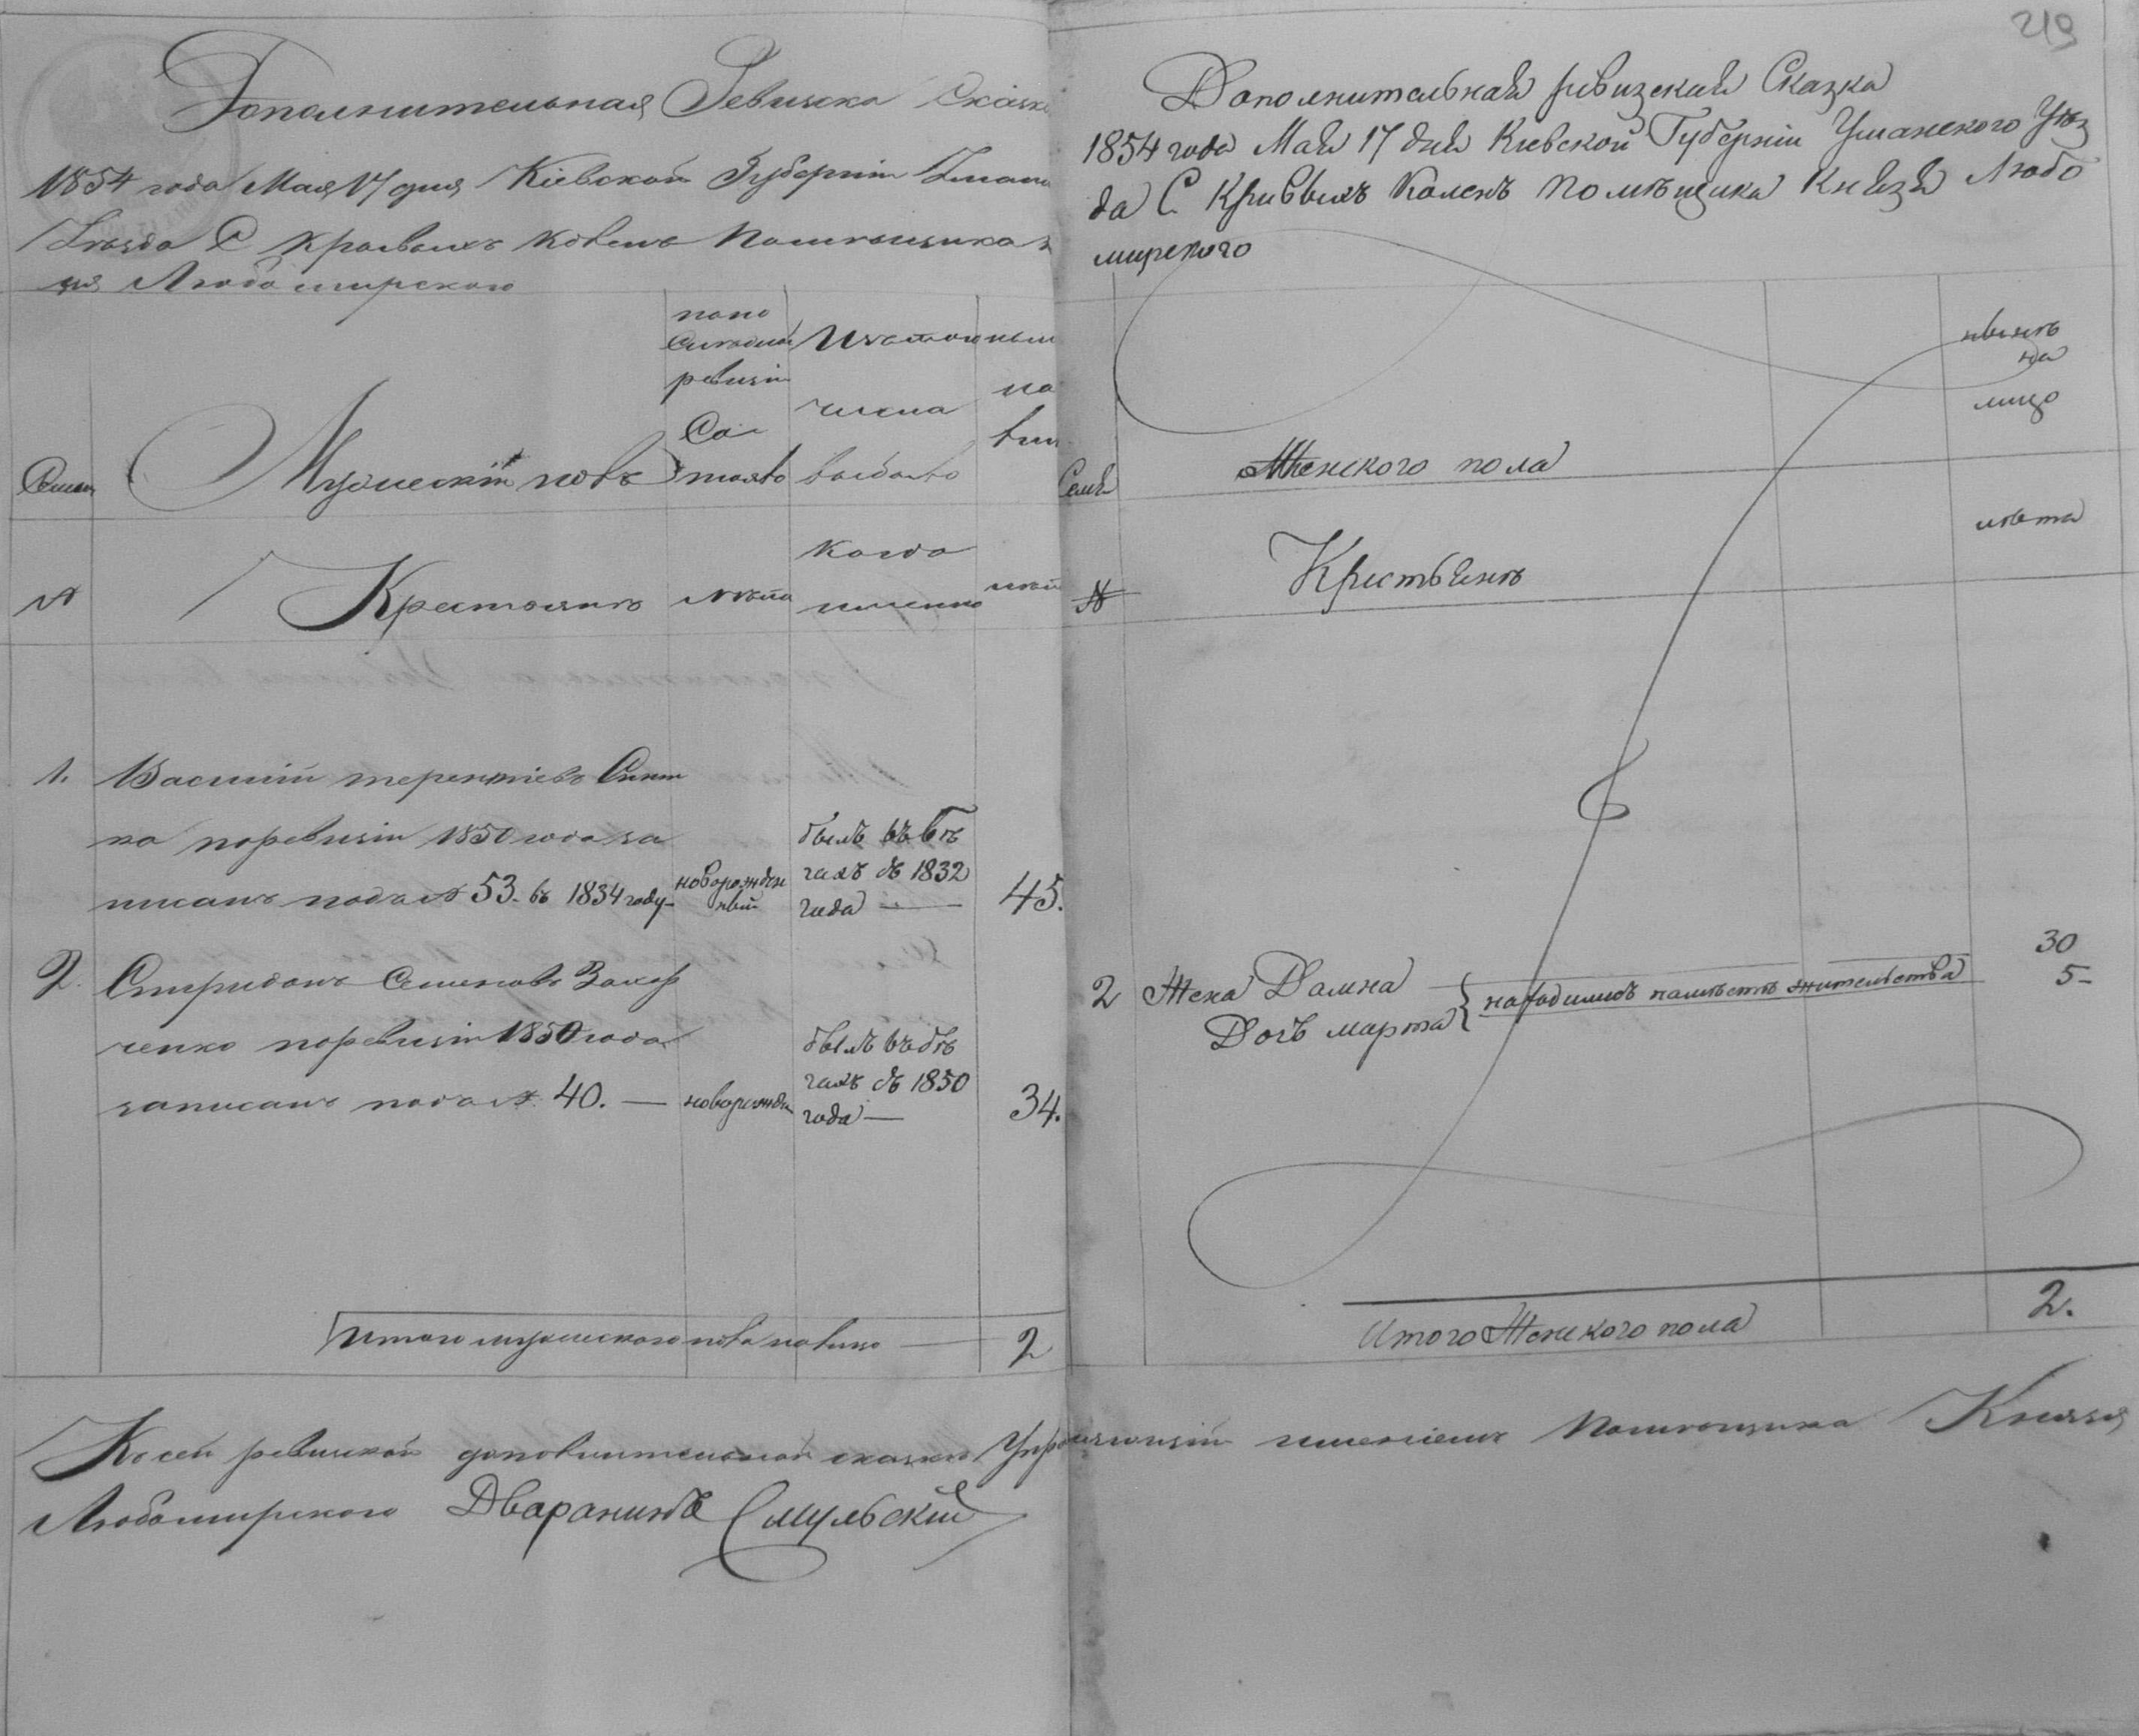 219
Дополнительная Ревизска Сказк
1854 года Мая 17 дня Кіевской Губерніи Уман
Уезда С Кривыхъ Коленъ Помѣщика
зя Любомирского
Семьи
Мужескій полъ
по по
слѣдней
ревизіи
Со
стояло
Изътого
числа
выбыло
ныне
на
лиц
№
Крестьянъ
лѣта
когда
именно
лѣта
1. Василій терентіевъ Скит
ка поревизіи 1850 года за
писанъ подъ № 53. въ 1834 году - новорожден
ный
былъ въ бѣ
гахъ съ 1832
года — 45.
2. Спиридонъ Семеновъ Захар
ченко поревизіи 1850 года
записанъ подъ №. 40. — новорожден
былъ въ бѣ
гахъ съ 1850
года — 34.
Итого мужеского пола на лицо — 2
Дополнительная ривизская Сказка
1854 года Мая 17 дня Киевской Губерніи Уманского Уѣз
да С Кривыхъ Коленъ Помѣщика Князя Любо
мирского
Семья
Женского пола
нынѣ
на
лицо
№
Крестьянъ
лѣта
2 Жена Домна 30
Дочь марта 5-
находились намѣстѣ жительства
Итого Женского пола 2.
Ксей ревизкой дополнительной сказке Управляющій имениемъ Помѣщика Князя
Любомирского Дваранинъ Смульский